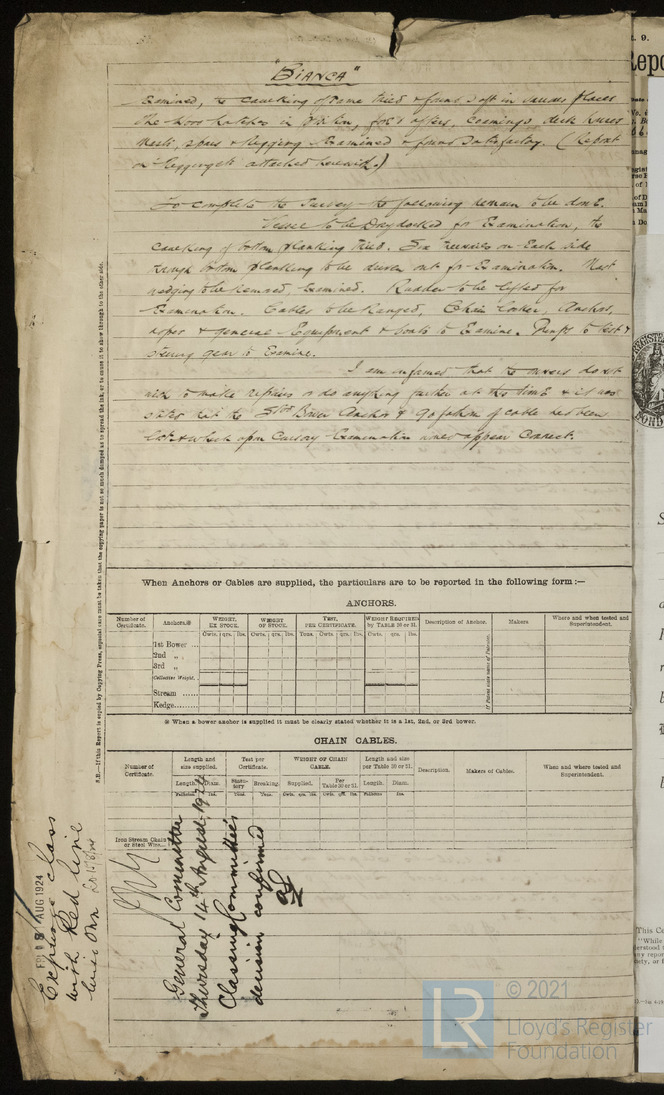 "BIANCA"
Examined, the caulking of same tried & found soft in various places
The hatches in position, coamings deck knees
Mast, spars & rigging Examined & found Satisfactory. (Report
on Rigging attached herewith.)
To complete the Survey the following remain to be done.
Vessel to be Drydocked for Examination, the
caulking of bottom planking tried. Six treenails on Each side
through bottom planking to be driven out for Examination. Mast
wedging to be Removed & Examined. Rudder to be lifted for
Examination. Cables to be Ranged, Chain locker, Anchors,
& general Equipment & boats to Examine. Pumps to test &
steering gear to Examine.
I am informed that the owners do not
wish to make repairs or do anything further at this time & it was
stated that the Bower Anchor & 90 fathoms of cable had been
lost & which upon Cursory Examination would appear Correct.
When Anchors or Cables are supplied, the particulars are to be reported in the following form :—
ANCHORS.
Number of Certificate.
Anchors.※
WEIGHT, EX STOCK.
WEIGHT OF STOCK.
TEST, PER CERTIFICATE.
WEIGHT REQUIRED by TABLE 30 or 31.
Description of Anchor.
Makers
Where and when tested and Superintendent.
Cwts. qrs. lbs. Cwts. qrs. lbs. Tons. Cwts. qrs. lbs. Cwts. qrs. lbs.
1st Bower ...
2nd „ ..
3rd „
Collective Weight.
Stream ......
Kedge.........
If Patent state name of Patentee.
※ When a bower anchor is supplied it must be clearly stated whether it is a 1st, 2nd, or 3rd bower.
CHAIN CABLES.
Number of Certificate.
Length and size supplied.
Test per Certificate.
WEIGHT OF CHAIN CABLE.
Length and size per Table 30 or 31.
Description.
Makers of Cables.
Where and when tested and Superintendent.
Length. Diam.
Breaking.
Supplied.
Per Table 30 or 31.
Length. Diam.
Iron Stream Chain or Steel Wire...
General Committee
Thursday 14th August 1924
Classing Committee's
decision confirmed
Expunge class
with Red line
5 AUG 1924
N.B.—If this Report is copied by Copying Press, especial care must be taken that the copying paper is not so much damped as to spread the ink, or to cause it to show through to the other side.
© 2021
Lloyd's Register
Foundation
LR